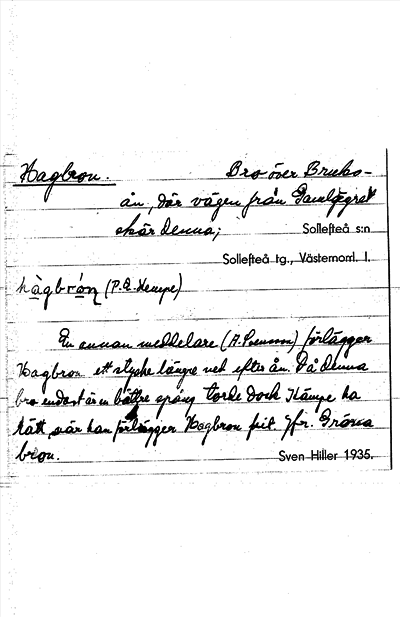 Hagbron. Bro över Bruks-
ån, där vägen från Gamlägret
skär denna; Sollefteå s:n
Sollefteå tg., Västernorrl. l.
hàgbrón (P. E. Kempe)
En annan meddelare (A. Svenson) förlägger
Hagbron ett stycke längre ned efter ån. Då denna
bro endast är en bättre spång torde dock Kämpe ha
rätt, när han förlägger Hagbron hit. Jfr. Gröna
bron. Sven Hiller 1935.